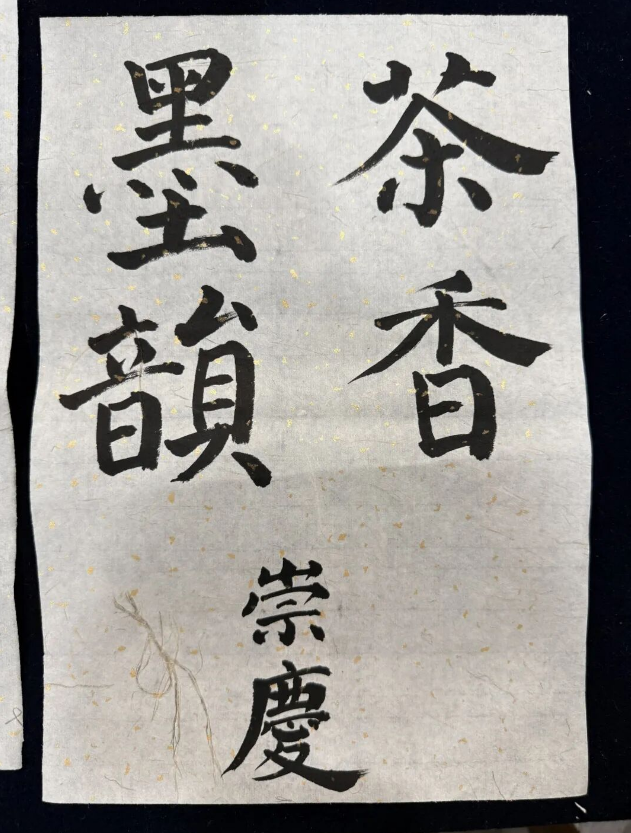 茶香
墨韻
崇慶